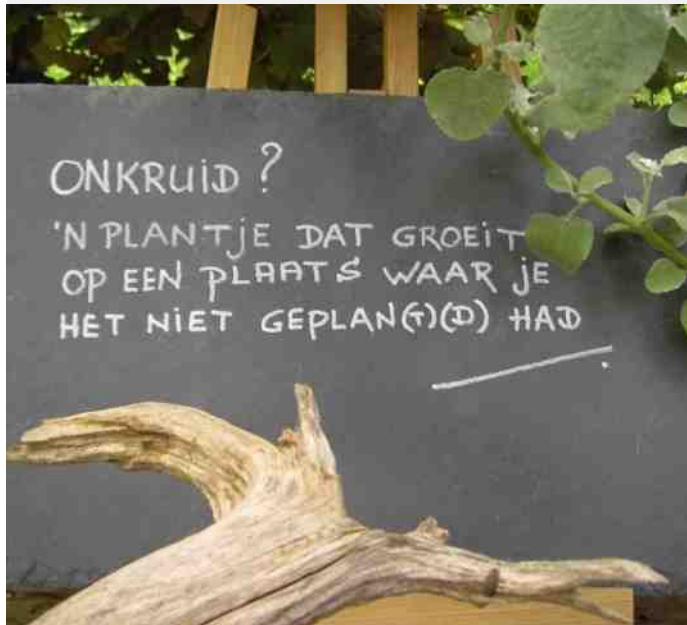 ONKRUiD ?
'N PLANTjE DAT GROEiT
OP EEN PLAATS WAAR jE
HET NiET GEPLAN(T)(D) HAD